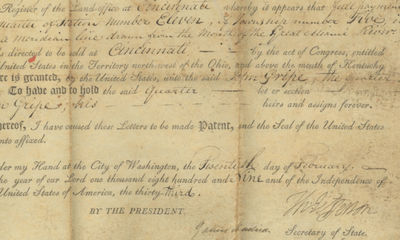 Register of the Land office at Cincinnati whereby it appears that full payment
quarter of section Number Eleven, of Township number Five in
a meridian line drawn from the Mouth of the Great Miami River
is directed to be sold at Cincinnati by the act of Congress, entitled
United States in the Territory northwest of the Ohio, and above the mouth of Kentucky
ere is granted, by the United States, unto the said John Gripe, the quarter
To have and to hold the said Quarter lot or section
Gripe, his heirs and assigns forever.
hereof, I have caused these Letters to be made Patent, and the Seal of the United States
unto affixed.
der my Hand at the City of Washington, the Twentieth day of February
the year of our Lord one thousand eight hundred and Nine and of the Independence of
United States of America, the thirty-third.
BY THE PRESIDENT,
Th: Jefferson
James Madison Secretary of State.